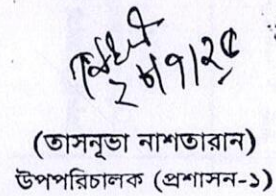 ২৮/৭/২৫
(তাসনূভা নাশতারান)
উপপরিচালক (প্রশাসন-১)